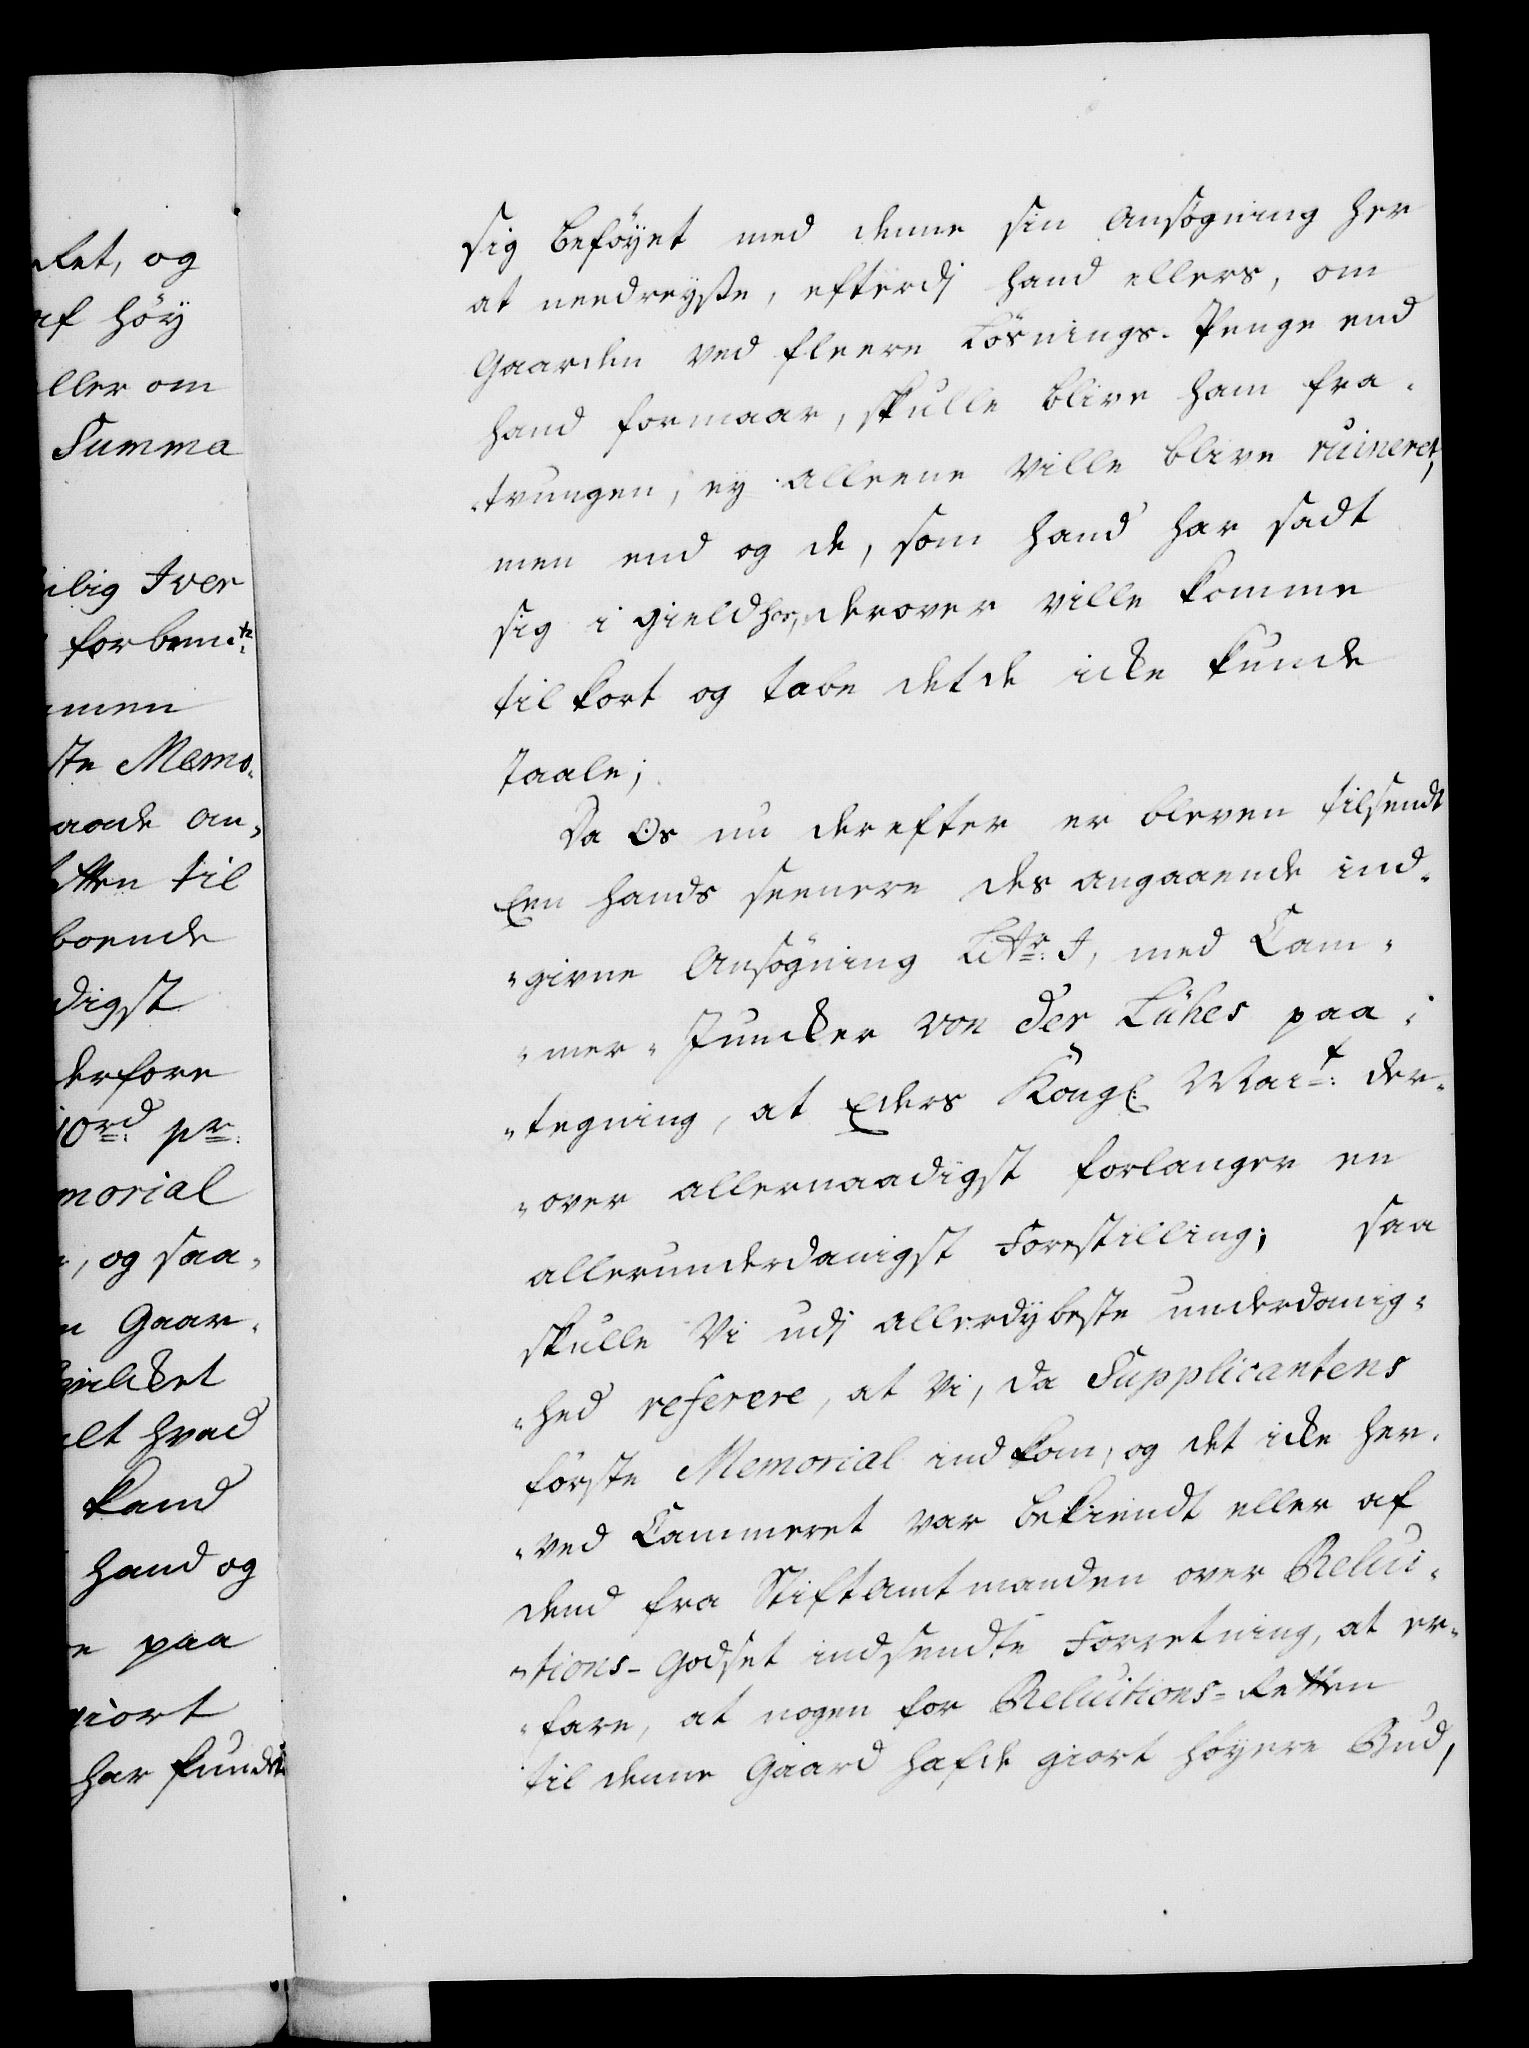 ket, og
af höy
ller om
Summa
ilig Iver
forbem.te
men
ste Memo-
aande an-
etten til
boende
digst
derfore
10rd. pr.
morial
, og saa-
n Gaar-
hvilcket
alt hvad
kand
hand og
e paa
giort
har kundet
sig beföyet med denne sin Ansögning her
at needreyse, efterdj hand ellers, om
Gaarden ved fleere Lösnings-Penge end
hand formaar, skulle blive ham fra-
-trungen, ey alleene ville blive ruineret,
men end og de, som hand har sadt
sig i gield hos, derover ville komme
til kort og tabe det de icke kunde
taale;
Da Os nu derefter er bleven tilsendt
Een hands seenere des angaaende ind-
-givne Ansögning Littr: I, med Cam-
-mer-Juncker von der Lühes paa-
-tegning, at Eders Kongl: Mait: der-
-over allernaadigst forlanger en
allerunderdanigst Forestilling; saa
skulle Vi udj allerdybeste underdanig-
-hed referere, at Vi, da Supplicantens
förste Memorial indkom, og det icke her-
-ved Cammeret var bekiendt eller af
dend fra Stiftamtmanden over Relui-
-tions-Godset indsendte Forretning, at er-
-fare, at nogen for Reluitions-Retten
til denne Gaard hafde giort höyere Bud,